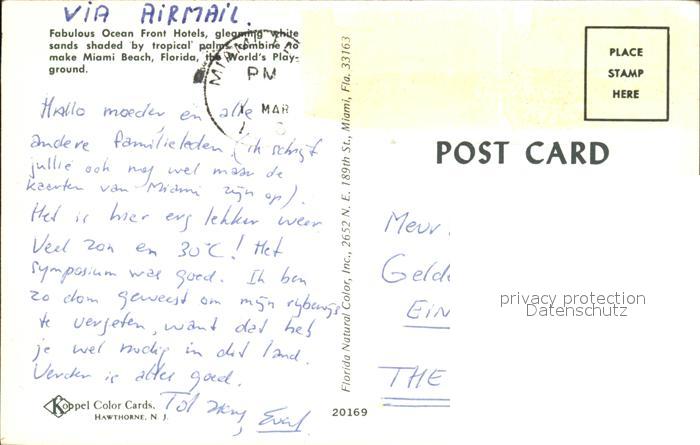 VIA AIRMAIL.
Fabulous Ocean Front Hotels, gleaming white
sands shaded by tropical palms combine to
make Miami Beach, Florida, the World's Play-
ground.
MIAMI
PM
MAR
Hallo moeder en alle
andere familieleden (ik schrijf
jullie ook nog wel maar de
kaarten van Miami zijn op).
Het is hier erg lekker weer
Veel zon en 30°C! Het
symposium was goed. Ik ben
zo dom geweest om mijn rijbewijs
te vergeten, want dat heb
je wel nodig in dit land.
Verder is alles goed.
Tot
Koppel Color Cards.
HAWTHORNE, N. J.
Florida Natural Color, Inc., 2652 N. E. 189th St., Miami, Fla. 33163
20169
PLACE
STAMP
HERE
POST CARD
Mevr.
Geld
EiN
THE
privacy protection
Datenschutz